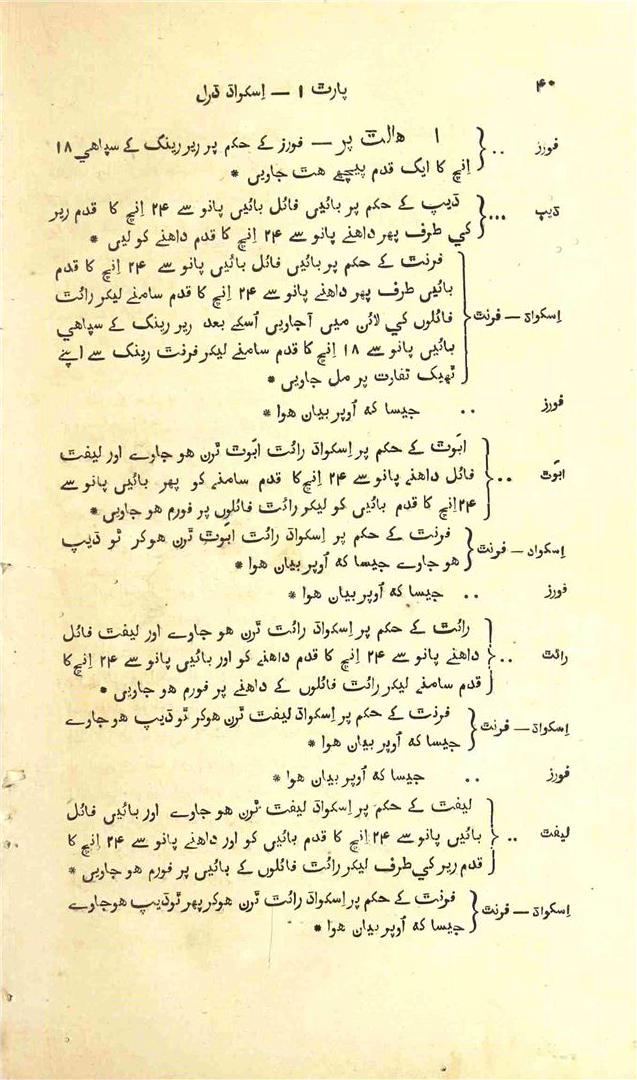 ۴۰
پارٹ ۱ — اِسکواڈ ڈرل
فورز .. ۱ ھالٹ پر — فورز کے حکم پر ریر رینگ کے سپاھی ۱۸
اِنچ کا ایک قدم پیچھے ھٹ جاویں *
ڈیپ ... ڈیپ کے حکم پر بائیں فائل بائیں پانو سے ۲۴ اِنچ کا قدم ریر
کی طرف پھر داھنے پانو سے ۲۴ اِنچ کا قدم داھنے کو لیں *
فرنٹ کے حکم پر بائیں فائل بائیں پانو سے ۲۴ اِنچ کا قدم
بائیں طرف پھر داھنے پانو سے ۲۴ اِنچ کا قدم سامنے لیکر رائٹ
اِسکواڈ — فرنٹ فائلوں کی لائن میں آجاویں اُسکے بعد ریر رینگ کے سپاھی
بائیں پانو سے ۱۸ اِنچ کا قدم سامنے لیکر فرنٹ رینگ سے اپنے
ٹھیک تفارت پر مل جاویں *
فورز .. جیسا کہ اُوپر بیان ھوا *
ابَوٹ کے حکم پر اِسکواڈ رائٹ ابَوٹ ٹرن ھو جاوے اور لیفٹ
ابَوٹ .. فائل داھنے پانو سے ۲۴ اِنچ کا قدم سامنے کو پھر بائیں پانو سے
۲۴ اِنچ کا قدم بائیں کو لیکر رائٹ فائلوں پر فورم ھو جاویں *
اِسکواڈ — فرنٹ فرنٹ کے حکم پر اِسکواڈ رائٹ ابَوٹ ٹرن ھوکر ٹو ڈیپ
ھو جاوے جیسا کہ اُوپر بیان ھوا *
فورز .. جیسا کہ اُوپر بیان ھوا *
رائٹ کے حکم پر اِسکواڈ رائٹ ٹرن ھو جاوے اور لیفٹ فائل
رائٹ .. داھنے پانو سے ۲۴ اِنچ کا قدم داھنے کو اور بائیں پانو سے ۲۴ اِنچ کا
قدم سامنے لیکر رائٹ فائلوں کے داھنے پر فورم ھو جاویں *
اِسکواڈ — فرنٹ فرنٹ کے حکم پر اِسکواڈ لیفٹ ٹرن ھوکر ٹو ڈیپ ھو جاوے
جیسا کہ اُوپر بیان ھوا *
فورز .. جیسا کہ اُوپر بیان ھوا *
لیفٹ کے حکم پر اِسکواڈ لیفٹ ٹرن ھو جاوے اور بائیں فائل
لیفٹ .. بائیں پانو سے ۲۴ اِنچ کا قدم بائیں کو اور داھنے پانو سے ۲۴ اِنچ کا
قدم ریر کی طرف لیکر رائٹ فائلوں کے بائیں پر فورم ھو جاویں *
اِسکواڈ — فرنٹ فرنٹ کے حکم پر اِسکواڈ رائٹ ٹرن ھوکر پھر ٹو ڈیپ ھو جاوے
جیسا کہ اُوپر بیان ھوا *